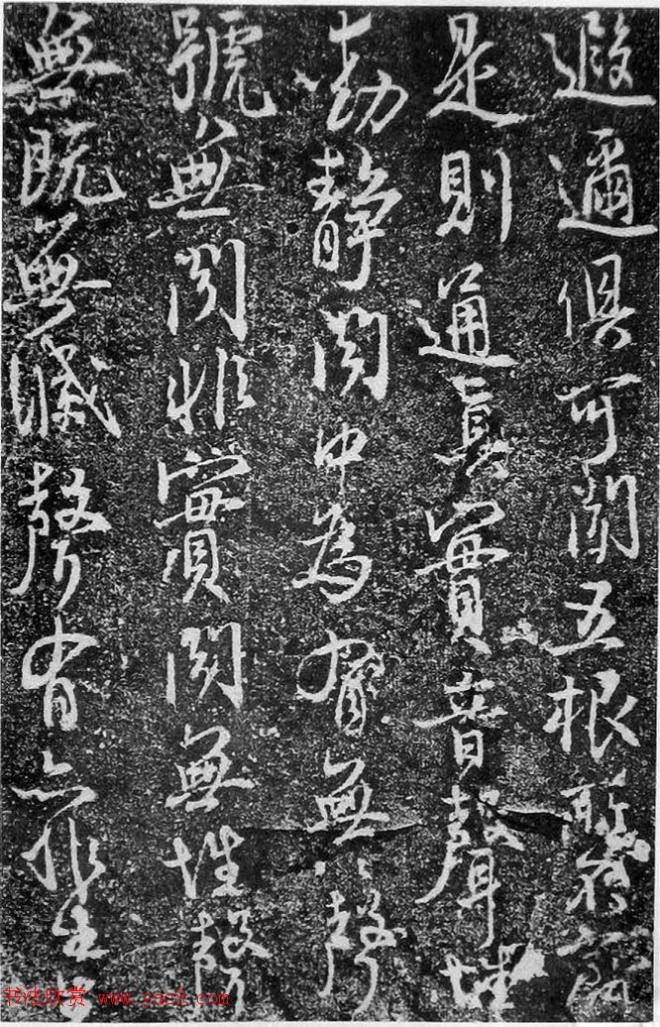 遐邇俱可聞五根所
是則通真實音聲性
動靜聞中為有無〻聲
號無聞非實聞無性聲
無既無滅聲有亦非生〻
书法欣赏 www.yac8.com